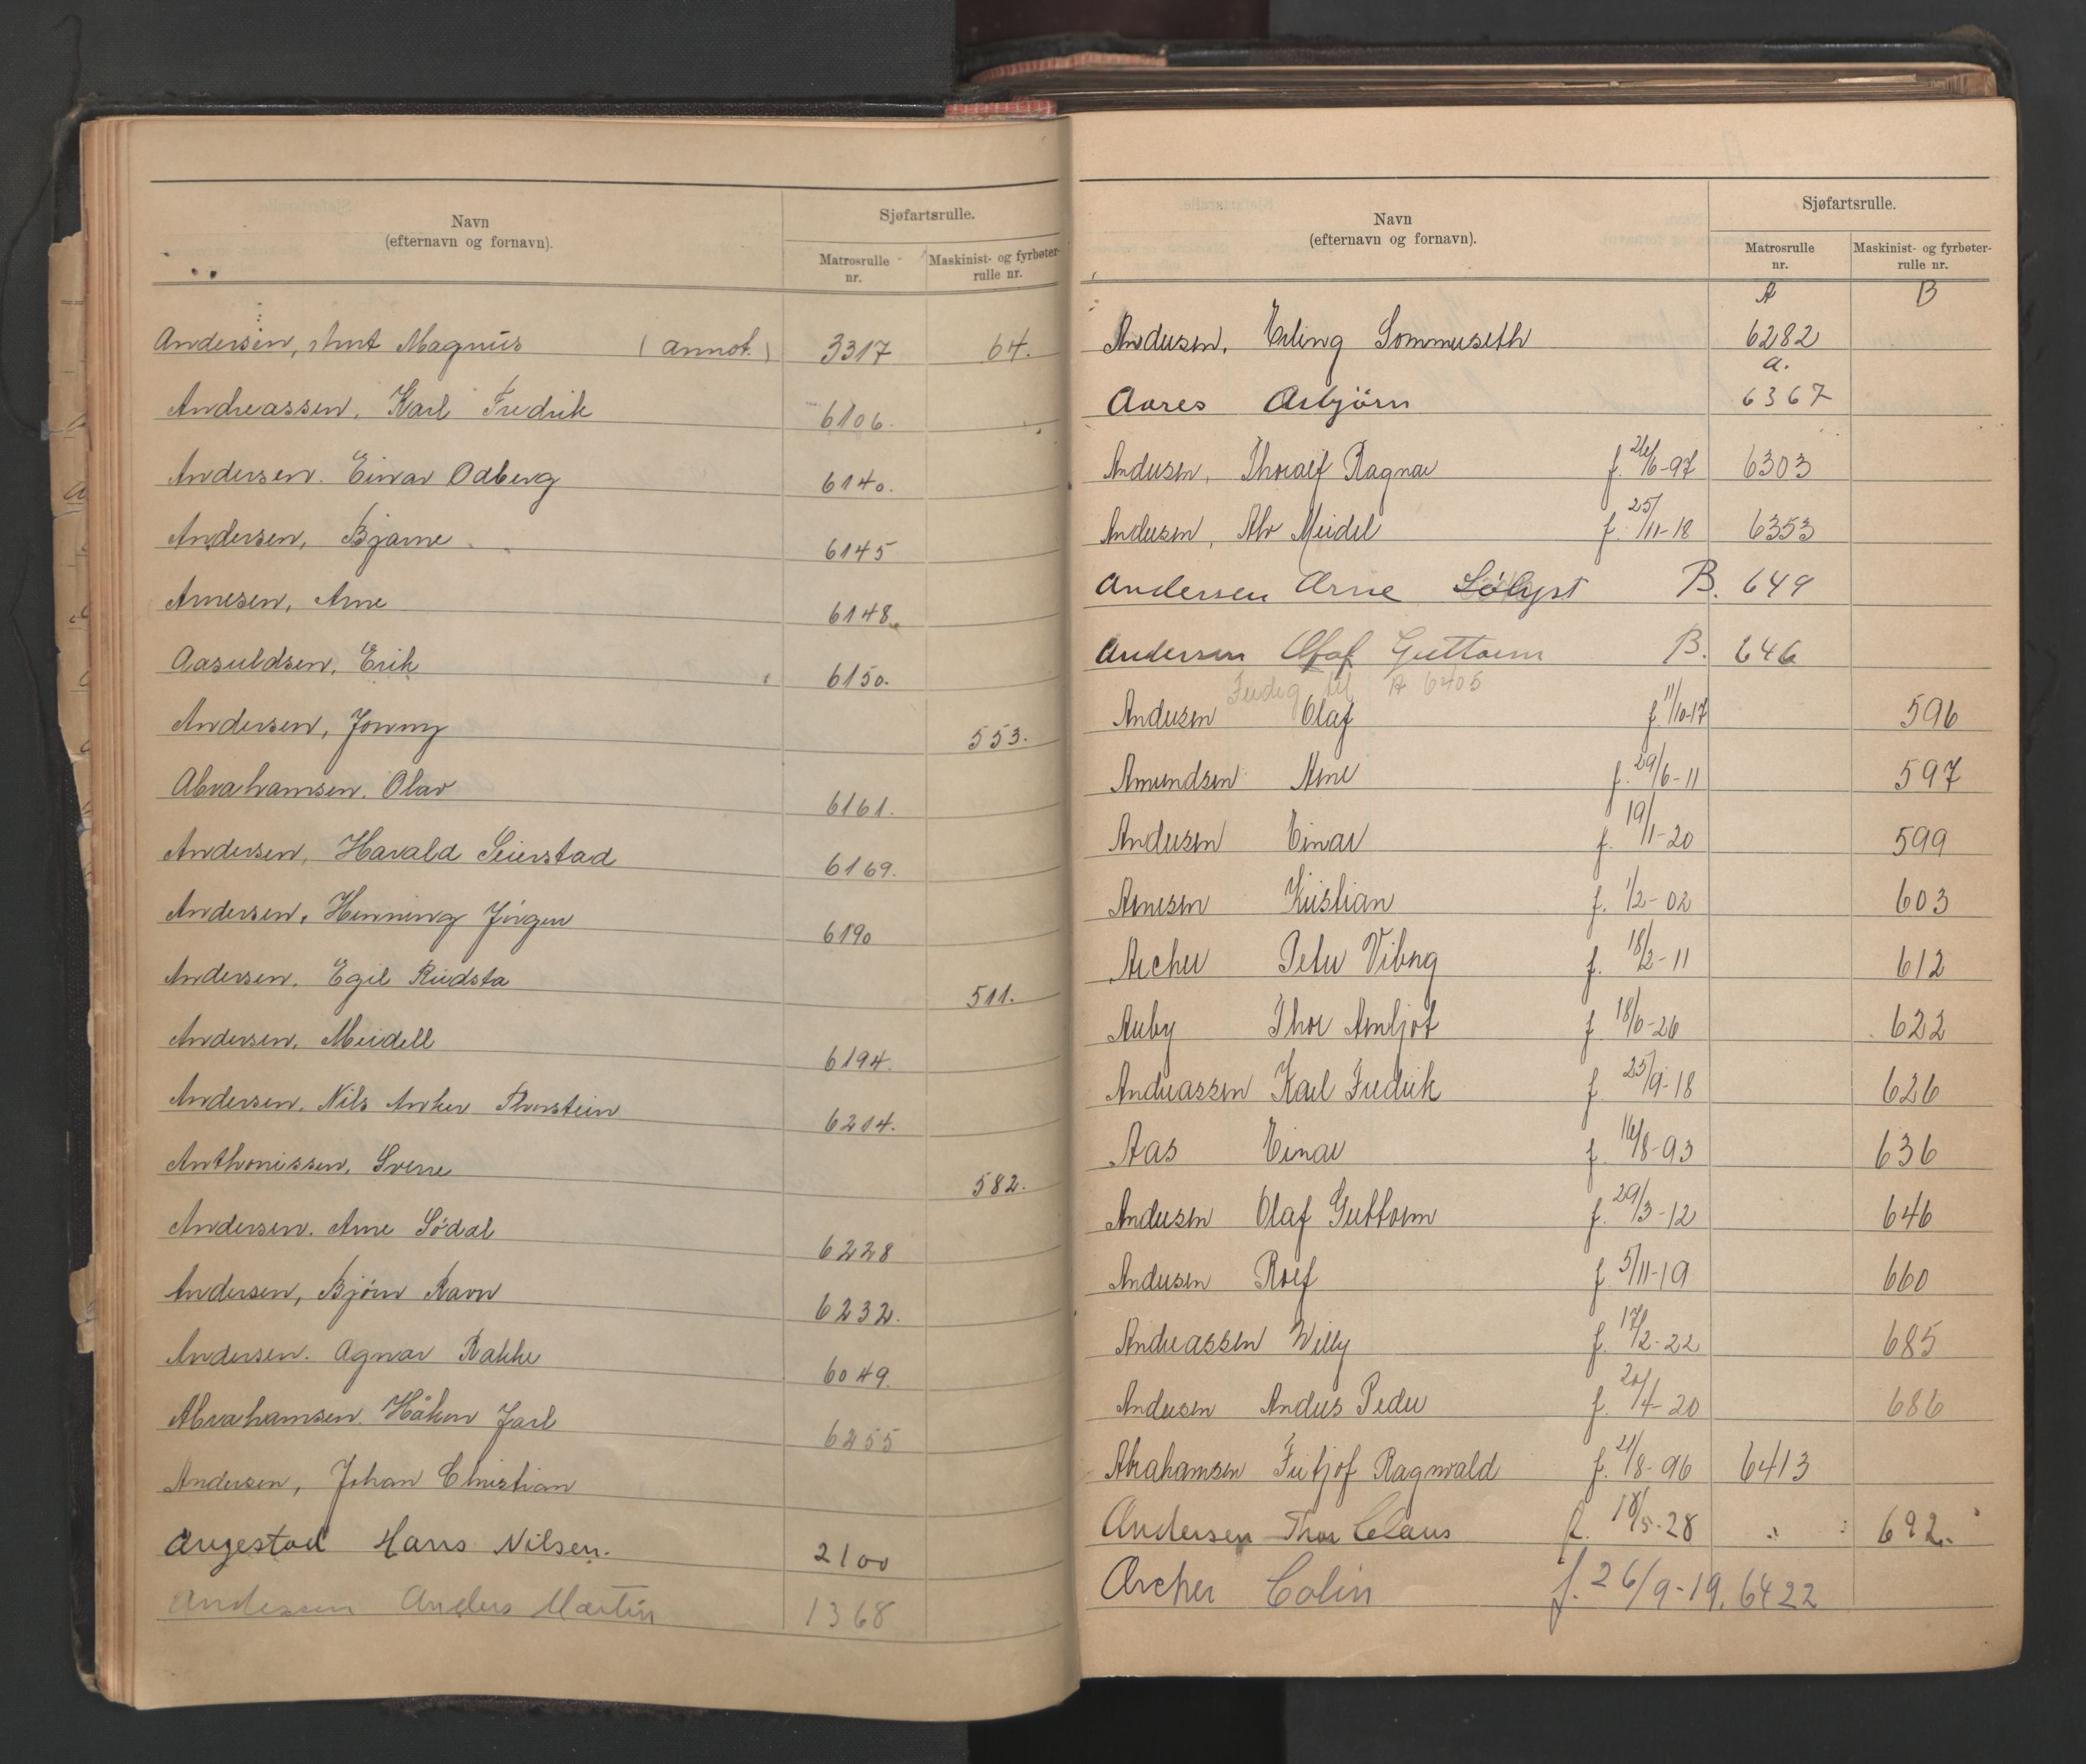 Navn
(efternavn og fornavn).
Sjøfartsrulle.
Matrosrulle
nr.
Maskinist- og fyrbøter-
rulle nr.
Andersen, Magnus (annot.) 3317 64.
Andreassen, Karl Fredrik 6106.
Andersen. Einar Odberg 6140.
Andersen, Bjarne 6145
Arnesen, Arne 6148.
Aasuldsen, Erik 6150.
Andersen, Jonny 553.
Abrahamsen. Olav 6161.
Andersen, Harald Seierstad 6169.
Andersen, Henning Jørgen 6190
Andersen. Egil 511.
Andersen, Meidell 6194.
Andersen. Nils Anker Thorstein 6214.
Anthonissen, Sverre 582.
Andersen. Arne Södal 6228
Andersen, Bjørn Ravn 6232.
Andersen. Agnar Rakke 6049.
Abrahamsen. Håkon Jarl 6255
Andersen, Johan Christian
Augestad Hans Nilsen. 2100
Andersen Anders Martin 1368
Navn
(efternavn og fornavn).
Sjøfartsrulle.
Matrosrulle
nr.
Maskinist- og fyrbøter-
rulle nr.
A B
Andersen, Erling Sommerseth 6282
a.
Aares Asbjørn 6367
Andersen, Thoralf Ragnar f. 26/6-97 6303
Andersen, Alv Meidel f. 25/11-18 6353
Andersen Arne Sölyst B. 649
Andersen Olaf Guttorm B. 646
A 6405
Andersen Olaf f. 11/10-17 596
Amundsen Arne f. 29/6-11 597
Andersen Einar f. 19/1-20 599
Arnesen Kristian f. 1/2-02 603
Archer Peter Viberg f. 18/2-11 612
Auby Thor Arnljot f 18/6-26 622
Andreassen Karl Fredrik f 25/9-18 626
Aas Einar f. 16/8-93 636
Andersen Olaf Guttorm f. 29/3-12 646
Andersen Rolf f. 5/11-19 660
Andreassen Willy f. 17/2-22 685
Andersen Anders Peder f. 20/4-20 686
Abrahamsen Fritjof Ragnvald f. 21/8-96 6413
Andersen Thor Claus f. 18/5-28 692.
Archer Colin f. 26/9-19. 6422